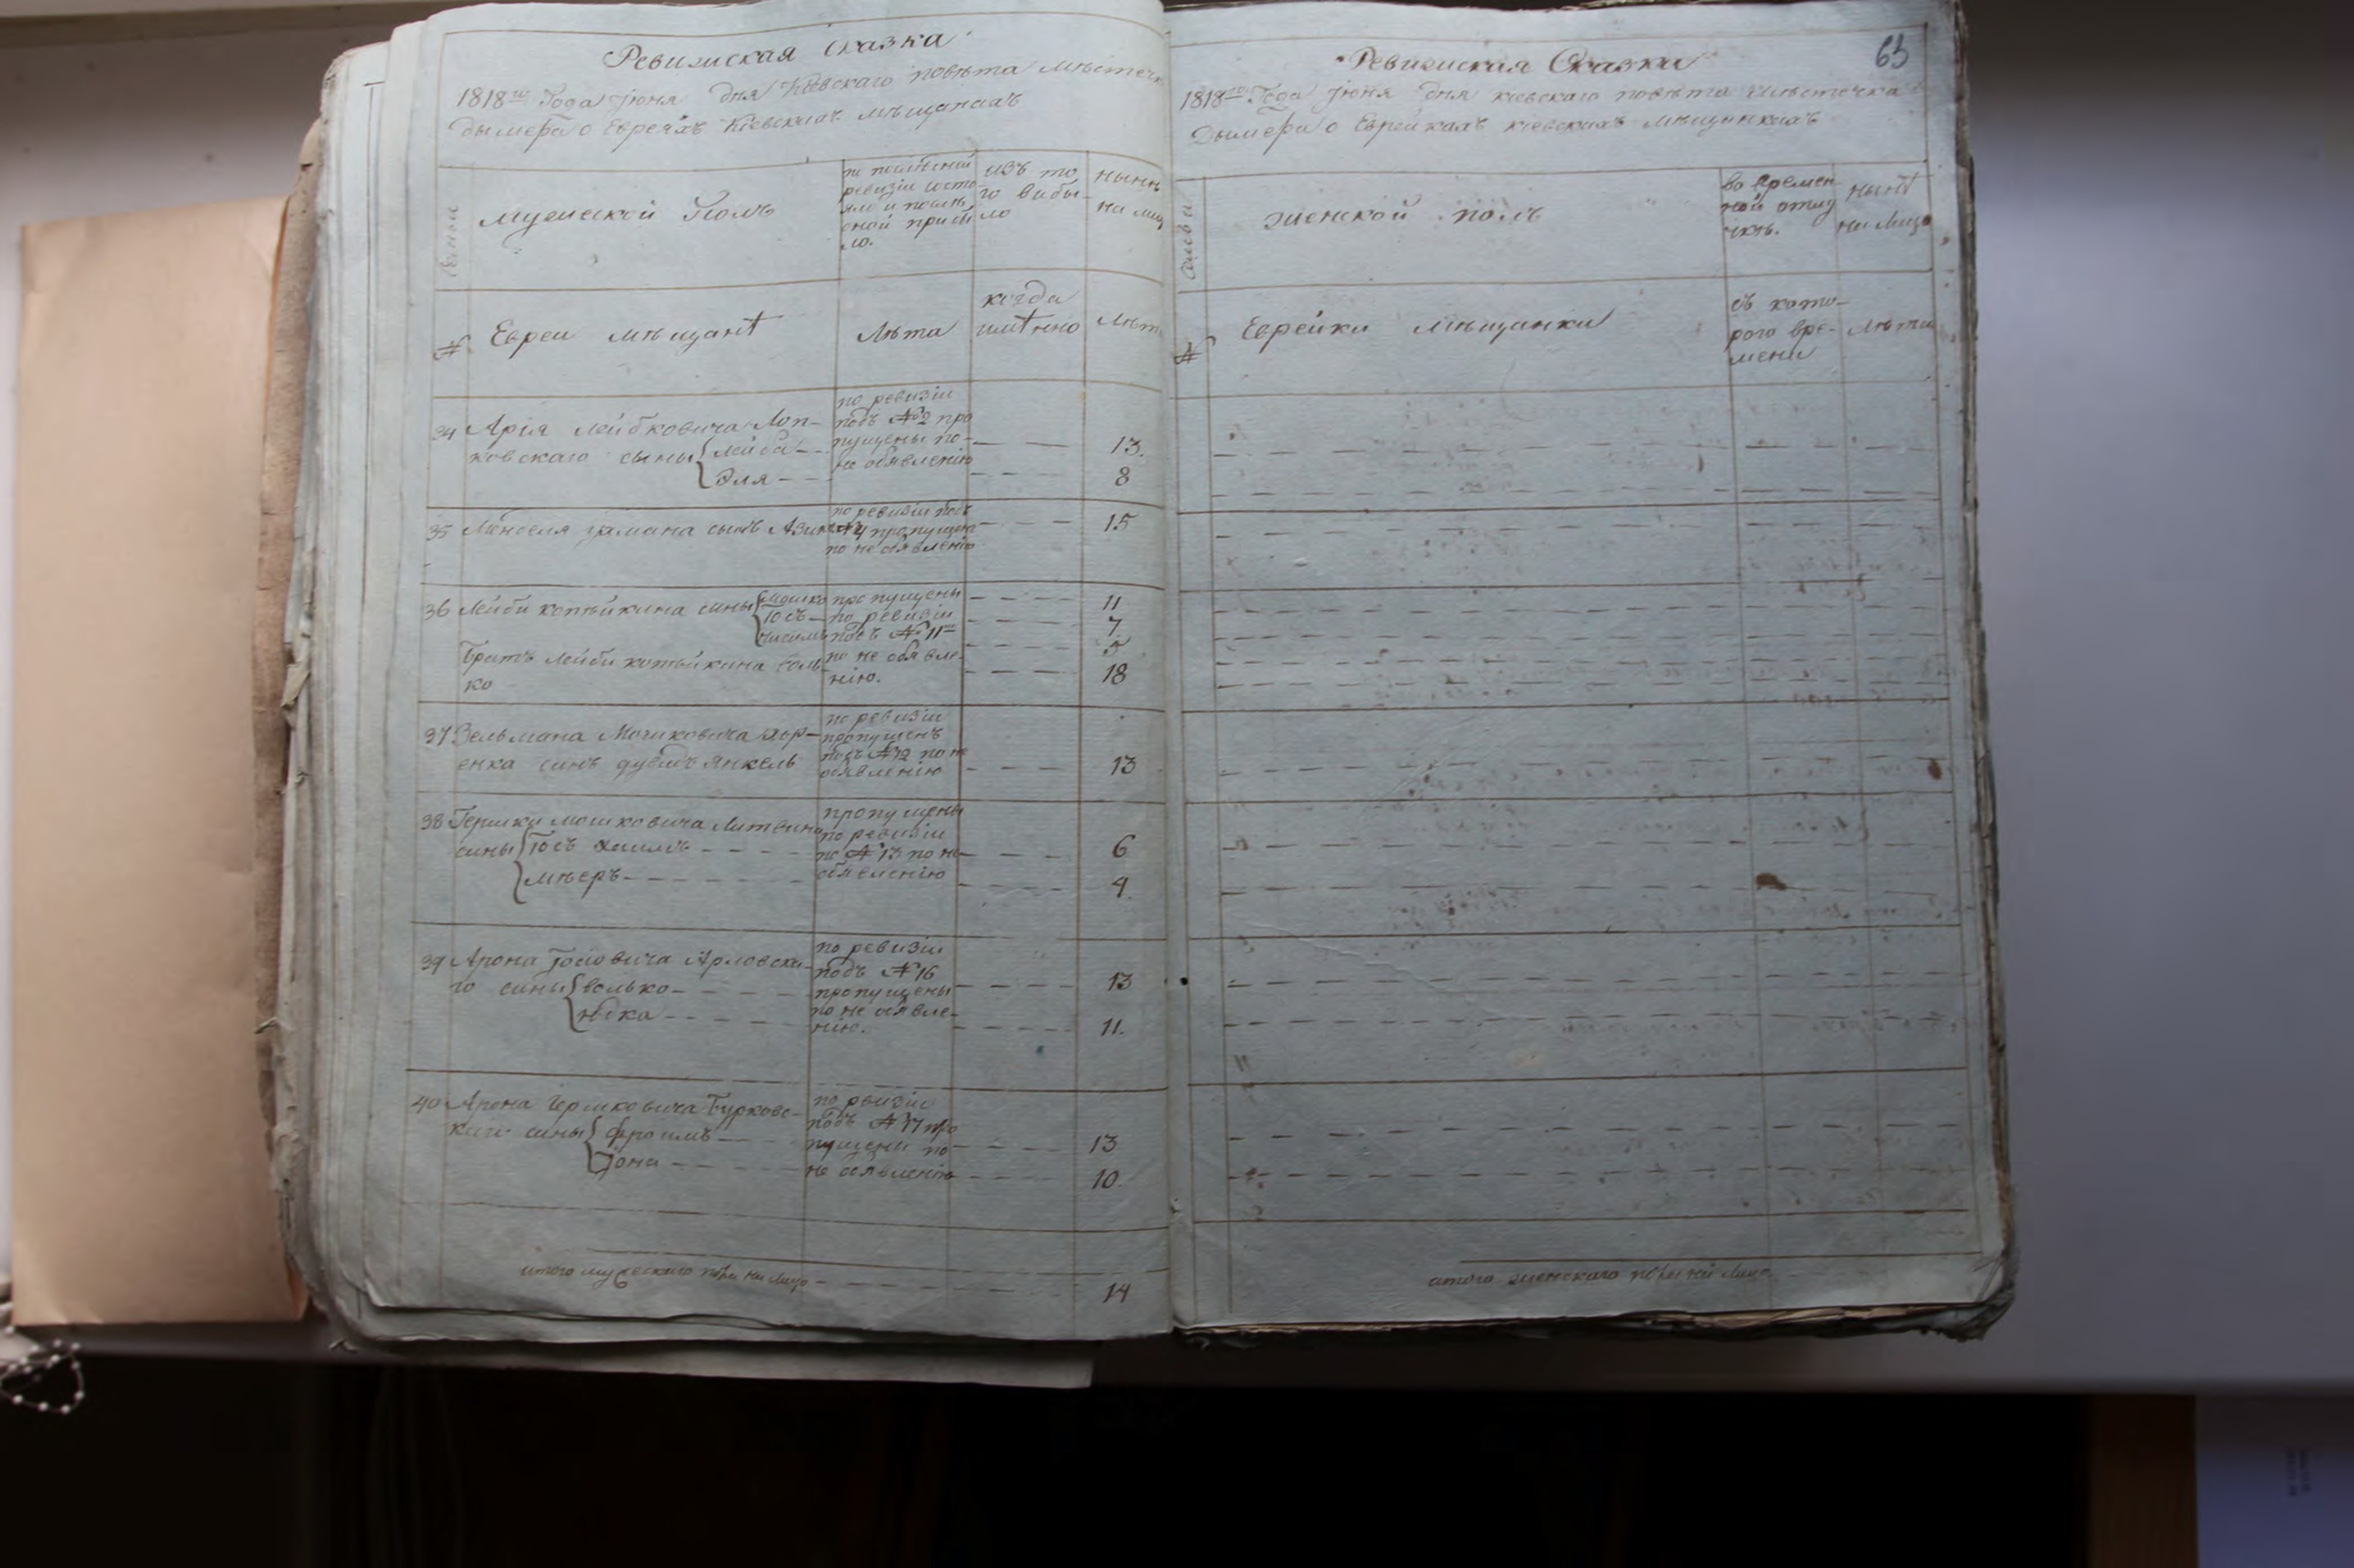 Ревизиская сказка
1818го Года июня дня Киевскаго повѣта мѣстечк
дымера о Евреяхъ Киевскихъ мѣщанахъ
мужеской Полъ
по послѣдней
ревизiи состо
яло и послѣ
оной прибы
ло.
изъ то
го выбы-
ло
нынѣ
на лиц
№
Евреи мѣщанѣ
Лѣта
когда
имѣнно
Лѣт
34 Арiя Лейбковича Лоп-
ковскаго сыны Лейба
Эля
по ревизiи
подъ №2 про
пущены по-
не объявленiю
13.
8
35 Менделя сынъ
по ревизiи подъ
№4 пропущенъ
по не объявленiю
15
36 Лейби копѣйкина сины Мошко
Iосъ
Братъ Лейби копѣйкина Голь-
ко
пропущены
по ревизiи
подъ №11
по не объявле-
нiю.
11
7
5
18
37 Зельмана Мошковича
енка синъ Янкель
по ревизiи
пропущенъ
подъ №12 по не
объявленiю
13
38 Гершки Мошковича Литвина
сины Iосъ Хаимъ
Мѣеръ
пропущены
по ревизiи
по №13 по не
объявленiю
6
4.
39 Арона Iосiовича Арловска-
го сины Волько
по ревизiи
подъ №16
пропущены
по не объявле-
нiю.
13
11.
40 Арона Гершковича Бурковс-
каго сины Фроимъ
Iона
по рвизiи
подъ №17 про
пущени по
не объявленiю
13
10.
итого мужескаго пола на лицо
14
Ревизиская Сказка
63
1818го Года июня дня киевскаго повѣта мѣстечка
Дымера о Еврейкахъ киевскихъ мѣщанкахъ
женской полъ
во времен-
ной отлу
чкѣ.
нынѣ
на лицо
№
Еврейки мѣщанки
съ кото-
рого вре-
мени
Лѣта
итого женскаго пола на лицо